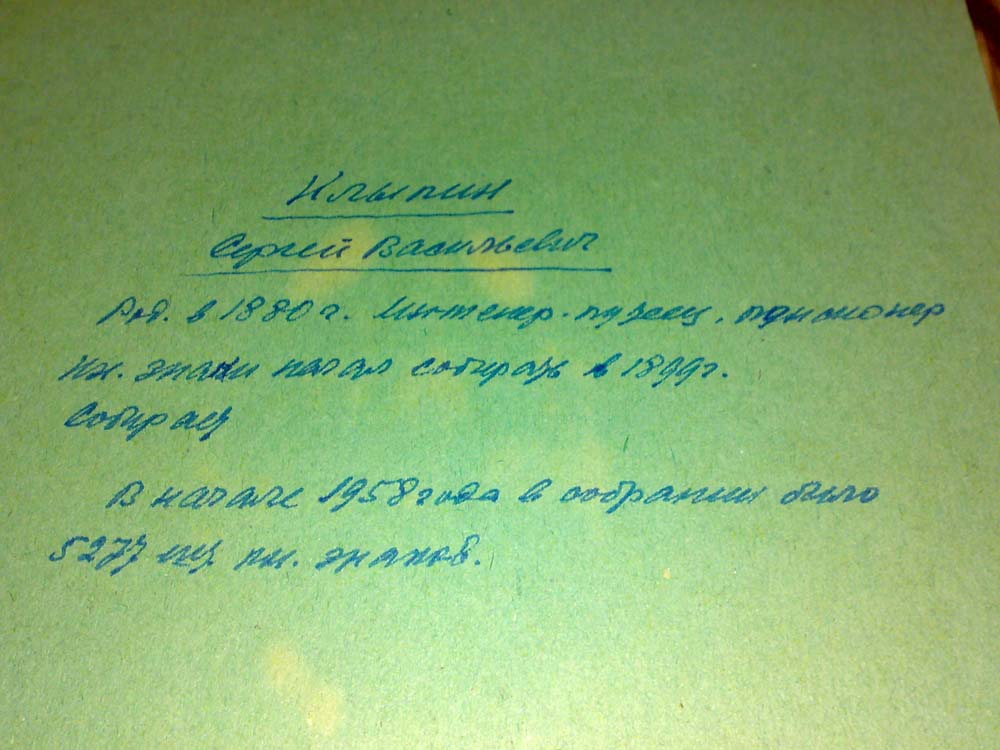 Клыпин
Сергей Васильевич
Род. в 1880 г. Инженер-путеец, пенсионер
Кн. знаки начал собирать в 1899 г.
Собирает
В начале 1958 года в собрании было
5277 шт. кн. знаков.